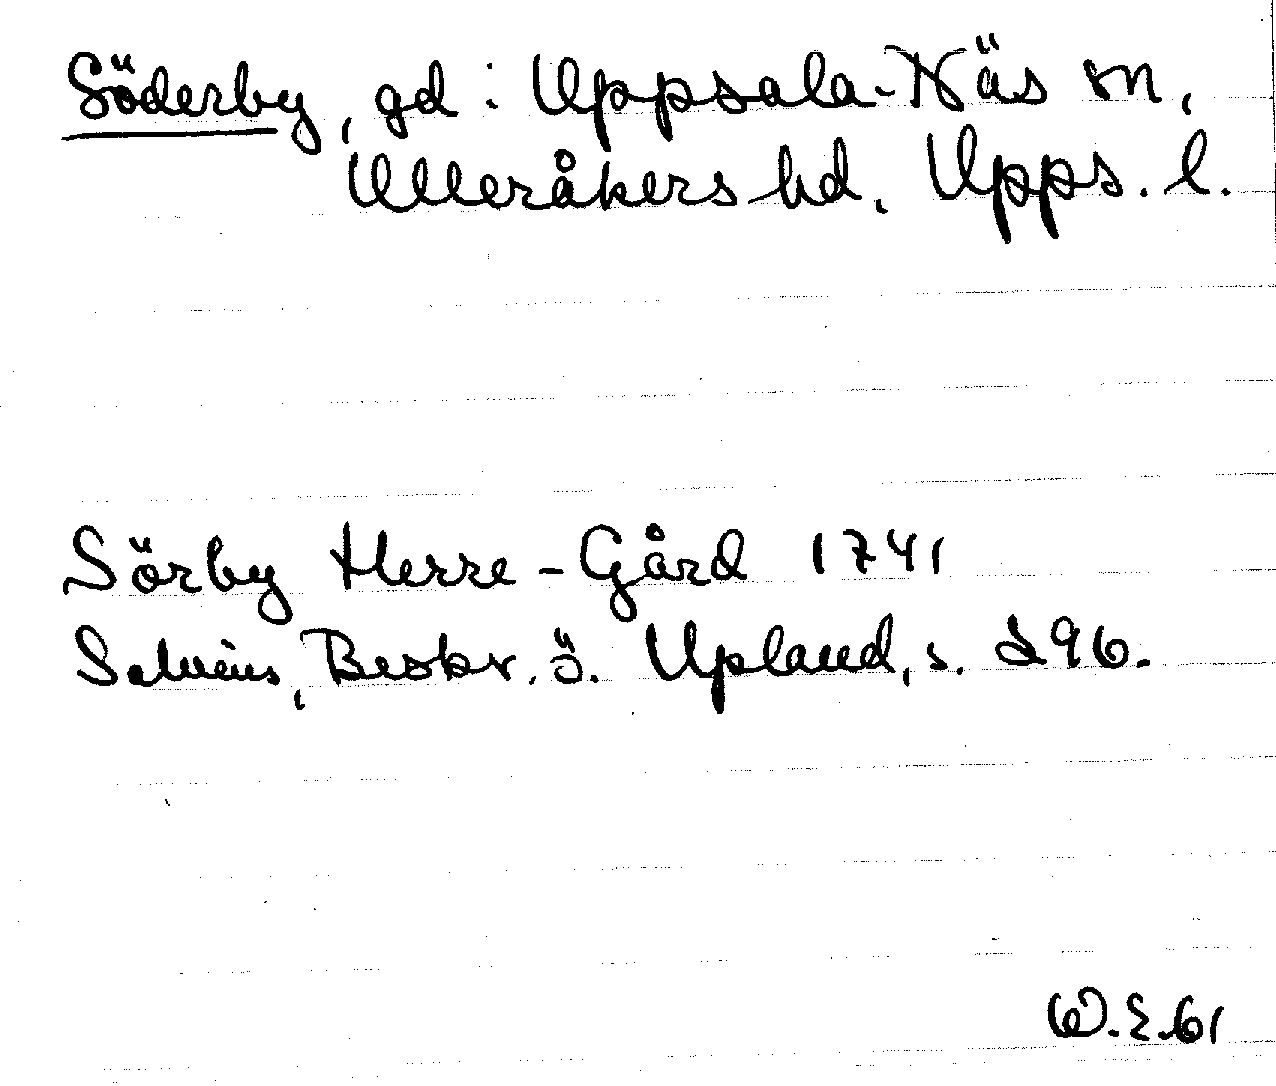 Söderby, gd : Uppsala-Näs sn,
Ulleråkers hd, Upps. l.
Sörby Herre-Gård 1741
Salvius, Beskr. ö. Upland, s. 296.
W.E.61